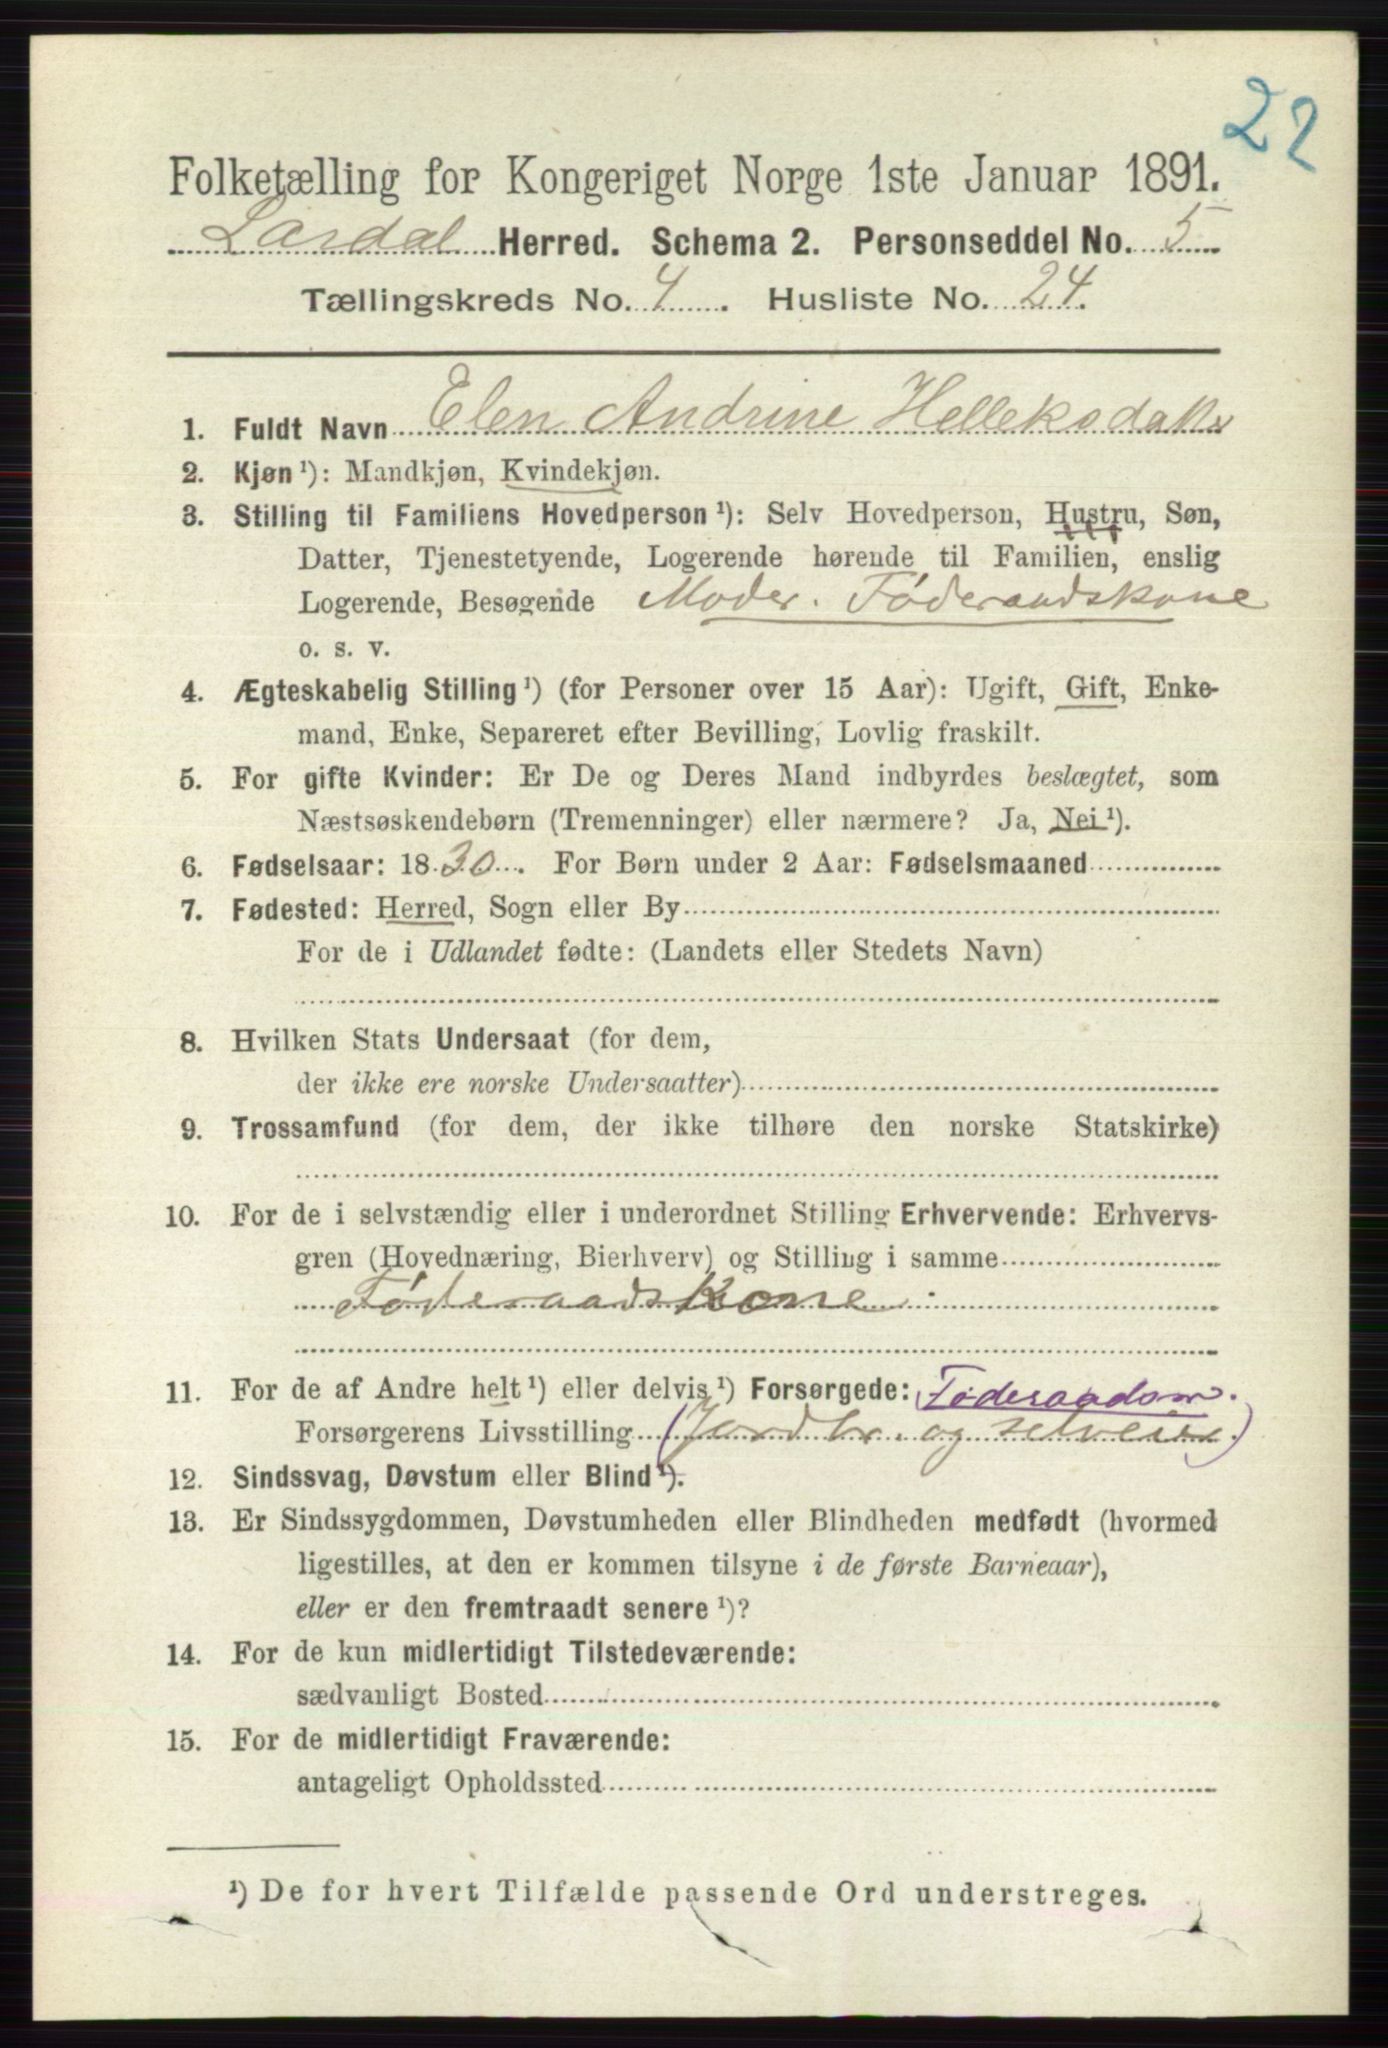 22
Folketælling for Kongeriget Norge 1ste Januar 1891.
Lardal Herred. Schema 2. Personseddel No. 5
Tællingskreds No. 4. Husliste No. 24.
1. Fuldt Navn Elen Andrine
2. Kjøn ¹): Mandkjøn, Kvindekjøn.
3. Stilling til Familiens Hovedperson ¹): Selv Hovedperson, Hustru, Søn,
Datter, Tjenestetyende, Logerende hørende til Familien, enslig
Logerende, Besøgende Moder. Føderaadskone
o. s. v.
4. Ægteskabelig Stilling ¹) (for Personer over 15 Aar): Ugift, Gift, Enke-
mand, Enke, Separeret efter Bevilling, Lovlig fraskilt.
5. For gifte Kvinder: Er De og Deres Mand indbyrdes beslægtet, som
Næstsøskendebørn (Tremenninger) eller nærmere? Ja, Nei ¹).
6. Fødselsaar: 1830. For Børn under 2 Aar: Fødselsmaaned
7. Fødested: Herred, Sogn eller By
For de i Udlandet fødte: (Landets eller Stedets Navn)
8. Hvilken Stats Undersaat (for dem,
der ikke ere norske Undersaatter)
9. Trossamfund (for dem, der ikke tilhøre den norske Statskirke)
10. For de i selvstændig eller i underordnet Stilling Erhvervende: Erhvervs-
gren (Hovednæring, Bierhverv) og Stilling i samme
Føderaadskone.
11. For de af Andre helt ¹) eller delvis ¹) Forsørgede: Føderaadsm.
Forsørgerens Livsstilling (Jordbr. og selveier.)
12. Sindssvag, Døvstum eller Blind ¹).
13. Er Sindssygdommen, Døvstumheden eller Blindheden medfødt (hvormed
ligestilles, at den er kommen tilsyne i de første Barneaar),
eller er den fremtraadt senere ¹)?
14. For de kun midlertidigt Tilstedeværende:
sædvanligt Bosted
15. For de midlertidigt Fraværende:
antageligt Opholdssted
¹) De for hvert Tilfælde passende Ord understreges.